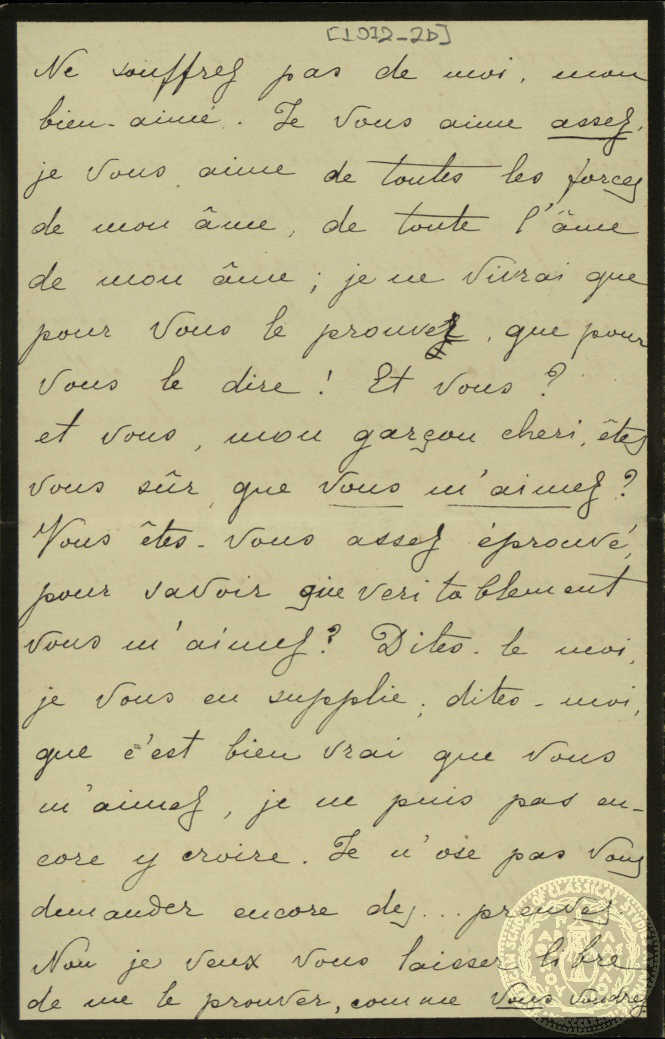 [1912-2b]
Ne souffrez pas de moi, mon
bien-aimé. Je vous aime assez,
je vous aime de toutes les forces
de mon âme, de toute l'âme
de mon âme ; je ne vivrai que
pour vous le prouver, que pour
vous le dire ! Et vous ?
et vous, mon garçon cheri, êtes
vous sûr, que vous m'aimez ?
Vous êtes-vous assez éprouvé,
pour savoir que veritablement
vous m'aimez ? Dites-le moi,
je vous en supplie, dites-moi,
que c'est bien vrai que vous
m'aimez, je ne puis pas en-
core y croire. Je n'ose pas vous
demander encore des... preuves.
Non je veux vous laisser libre
de me le prouver, comme vous voudrez